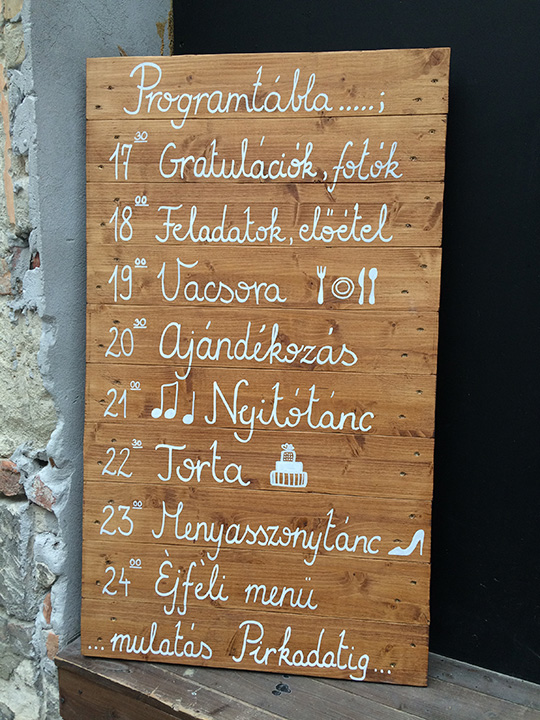 Programtábla.....;
17 30 Gratulációk, fotók
18 00 Feladatok, előétel
19 00 Vacsora
20 30 Ajándékozás
21 00 Nyitótánc
22 30 Torta
23 00 Menyasszonytánc
24 00 Èjfèli menü
...mulatás Pirkadatig...